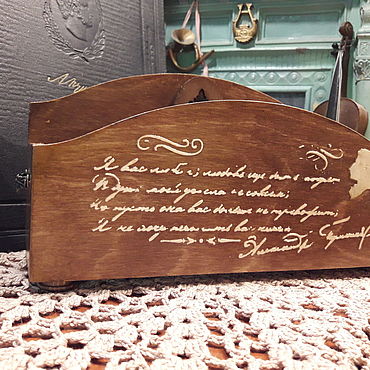 Я вас любил; любовь еще быть может
В душе моей угасла не совсем;
Но пусть она вас больше не тревожит;
Я не хочу печалить вас ничем
Александр Пушкин